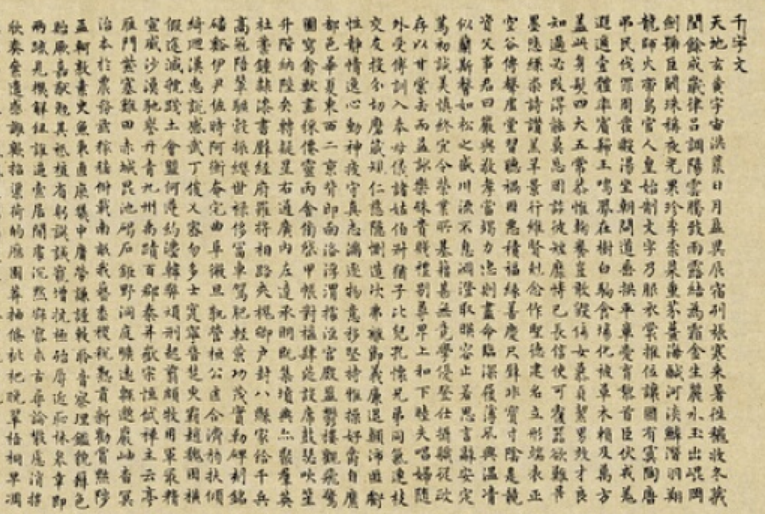 千字文
天地玄黃宇宙洪荒日月盈昃辰宿列張寒来暑往穐收冬藏
閏餘成歲律呂調陽雲騰致雨露結為霜金生麗水玉出崐岡
劍號巨闕珠稱夜光果珍李柰菜重芥薑海醎河淡鱗潛羽翔
龍師火帝鳥官人皇始制文字乃服衣裳推位讓國有虞陶唐
吊民伐罪周發殷湯坐朝問道垂拱平章愛育黎首臣伏戎羌
遐邇壹體率賓歸王鳴鳳在樹白駒食場化被草木賴及萬方
蓋此身髮四大五常恭惟鞠養豈敢毀傷女慕貞絜男效才良
知過必改得能莫忘罔談彼短靡恃己長信使可覆器欲難量
墨悲絲染詩讚羔羊景行維賢剋念作聖德建名立形端表正
空谷傳聲虛堂習聽禍因惡積福緣善慶尺璧非寶寸陰是競
資父事君曰嚴與敬孝當竭力忠則盡命臨深履薄夙興溫凊
似蘭斯馨如松之盛川流不息淵澄取暎容止若思言辭安定
篤初誠美慎終宜令榮業所基籍甚無竟學優登仕攝職從政
存以甘棠去而益詠樂殊貴賤禮別尊卑上和下睦夫唱婦隨
外受傅訓入奉母儀諸姑伯叔猶子比兒孔懷兄弟同氣連枝
交友投分切磨箴規仁慈隱惻造次弗離節義廉退顛沛匪虧
性靜情逸心動神疲守真志滿逐物意移堅持雅操好爵自縻
都邑華夏東西二京背邙面洛浮渭據涇宮殿盤鬱樓觀飛驚
圖寫禽獸畫綵仙靈丙舍傍啓甲帳對楹肆筵設席鼓瑟吹笙
升階納陛弁轉疑星右通廣內左達承明既集墳典亦聚群英
杜稾鍾隸漆書壁經府羅將相路俠槐卿戶封八縣家給千兵
高冠陪輦驅轂振纓世祿侈富車駕肥輕策功茂實勒碑刻銘
磻溪伊尹佐時阿衡奄宅曲阜微旦孰營桓公匡合濟弱扶傾
綺迴漢惠說感武丁俊乂密勿多士寔寧晉楚更霸趙魏困橫
假途滅虢踐土會盟何遵約法韓弊煩刑起翦頗牧用軍最精
宣威沙漠馳譽丹青九州禹跡百郡秦并嶽宗恒岱禪主云亭
雁門紫塞雞田赤城昆池碣石鉅野洞庭曠遠綿邈巖岫杳冥
治本於農務茲稼穡俶載南畝我藝黍稷稅熟貢新勸賞黜陟
孟軻敦素史魚秉直庶幾中庸勞謙謹敕聆音察理鑑貌辯色
貽厥嘉猷勉其祗植省躬譏誡寵增抗極殆辱近恥林皋幸即
兩疏見機解組誰逼索居閒處沉默寂寥求古尋論散慮逍遙
欣奏累遣慼謝歡招渠荷的歷園莽抽條枇杷晚翠梧桐早凋